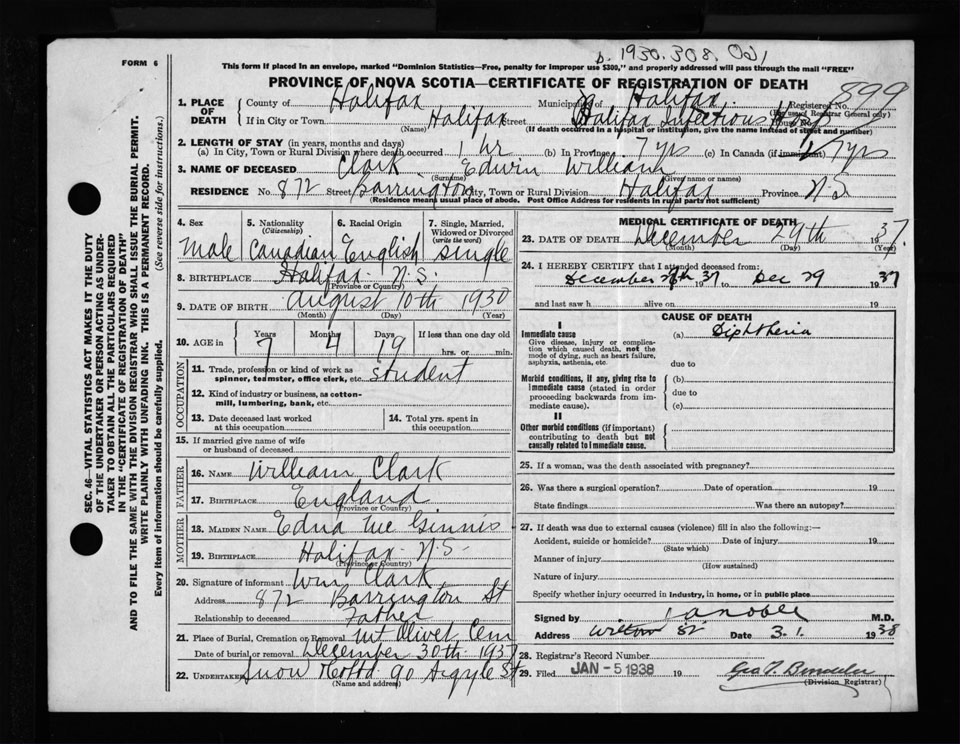 b. 1930.308.
FORM 6
This form if placed in an envelope, marked "Dominion Statistics—Free, penalty for improper use $300," and properly addressed will pass through the mail "FREE"
PROVINCE OF NOVA SCOTIA—CERTIFICATE OF REGISTRATION OF DEATH
899
SEC. 46—VITAL STATISTICS ACT MAKES IT THE DUTY
OF THE UNDERTAKER OR PERSON ACTING AS UNDER-
TAKER TO OBTAIN ALL THE PARTICULARS REQUIRED
IN THE "CERTIFICATE OF REGISTRATION OF DEATH"
AND TO FILE THE SAME WITH THE DIVISION REGISTRAR WHO SHALL ISSUE THE BURIAL PERMIT.
WRITE PLAINLY WITH UNFADING INK. THIS IS A PERMANENT RECORD.
Every item of information should be carefully supplied. (See reverse side for instructions.)
1. PLACE OF DEATH County of Halifax Municipality of Halifax Registered No.
(For use of Registrar General only)
If in City or Town Halifax Street Halifax Infectious Hosp House No.
(Name) (If death occurred in a hospital or institution, give the name instead of street and number)
2. LENGTH OF STAY (in years, months and days)
(a) In City, Town or Rural Division where death occurred 1 hr (b) In Province 7 yrs (c) In Canada (if immigrant) 7 yrs
3. NAME OF DECEASED Clark Edwin William
(Surname) (Given name or names)
RESIDENCE No. 872 Street Barrington City, Town or Rural Division Halifax Province N.S
(Residence means usual place of abode. Post Office Address for residents in rural parts not sufficient)
4. Sex Male
5. Nationality (Citizenship) Canadian
6. Racial Origin English
7. Single, Married, Widowed or Divorced (write the word) Single
8. BIRTHPLACE Halifax N.S.
(Province or Country)
9. DATE OF BIRTH August 10th 1930
(Month) (Day) (Year)
10. AGE in Years 7 Months 4 Days 19 If less than one day old
hrs. or min.
OCCUPATION
11. Trade, profession or kind of work as spinner, teamster, office clerk, etc. Student
12. Kind of industry or business, as cotton-mill, lumbering, bank, etc.
13. Date deceased last worked at this occupation
14. Total yrs. spent in this occupation
15. If married give name of wife or husband of deceased
FATHER
16. NAME William Clark
17. BIRTHPLACE England
(Province or Country)
MOTHER
18. MAIDEN NAME Edna
19. BIRTHPLACE Halifax N.S.
(Province or Country)
20. Signature of informant Wm Clark
Address 872 Barrington St
Relationship to deceased Father
21. Place of Burial, Cremation or Removal Mt Olivet Cem
Date of burial or removal December 30th 1937
22. UNDERTAKER Snow 90 Argyle St
(Name and address)
MEDICAL CERTIFICATE OF DEATH
23. DATE OF DEATH December 29th 1937.
(Month) (Day) (Year)
24. I HEREBY CERTIFY that I attended deceased from:
December 1937 to Dec 29 1937
and last saw h alive on 19
CAUSE OF DEATH
I
Immediate cause (a) Diphtheria
Give disease, injury or complication which caused death, not the mode of dying, such as heart failure, asphyxia, asthenia, etc.
due to
Morbid conditions, if any, giving rise to immediate cause (stated in order proceeding backwards from immediate cause).
(b)
due to
(c)
II
Other morbid conditions (if important) contributing to death but not causally related to immediate cause.
25. If a woman, was the death associated with pregnancy?
26. Was there a surgical operation? Date of operation 19
State findings Was there an autopsy?
27. If death was due to external causes (violence) fill in also the following:—
Accident, suicide or homicide? Date of injury 19
(State which)
Manner of injury
(How sustained)
Nature of injury
Specify whether injury occurred in industry, in home, or in public place
Signed by M.D.
Address Date 3.1. 1938
28. Registrar's Record Number
29. Filed JAN -5 1938 19
(Division Registrar)